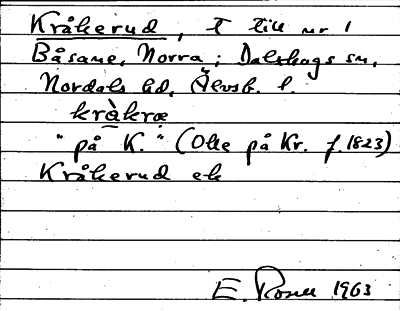 Kråkerud, T till nr 1
Båsane, Norra; Dalskogs sn,
Nordals hd, Älvsb. l.
kràkræ
"på K." (Olle på Kr. f. 1823)
Kråkerud ek
E. Rosell 1963